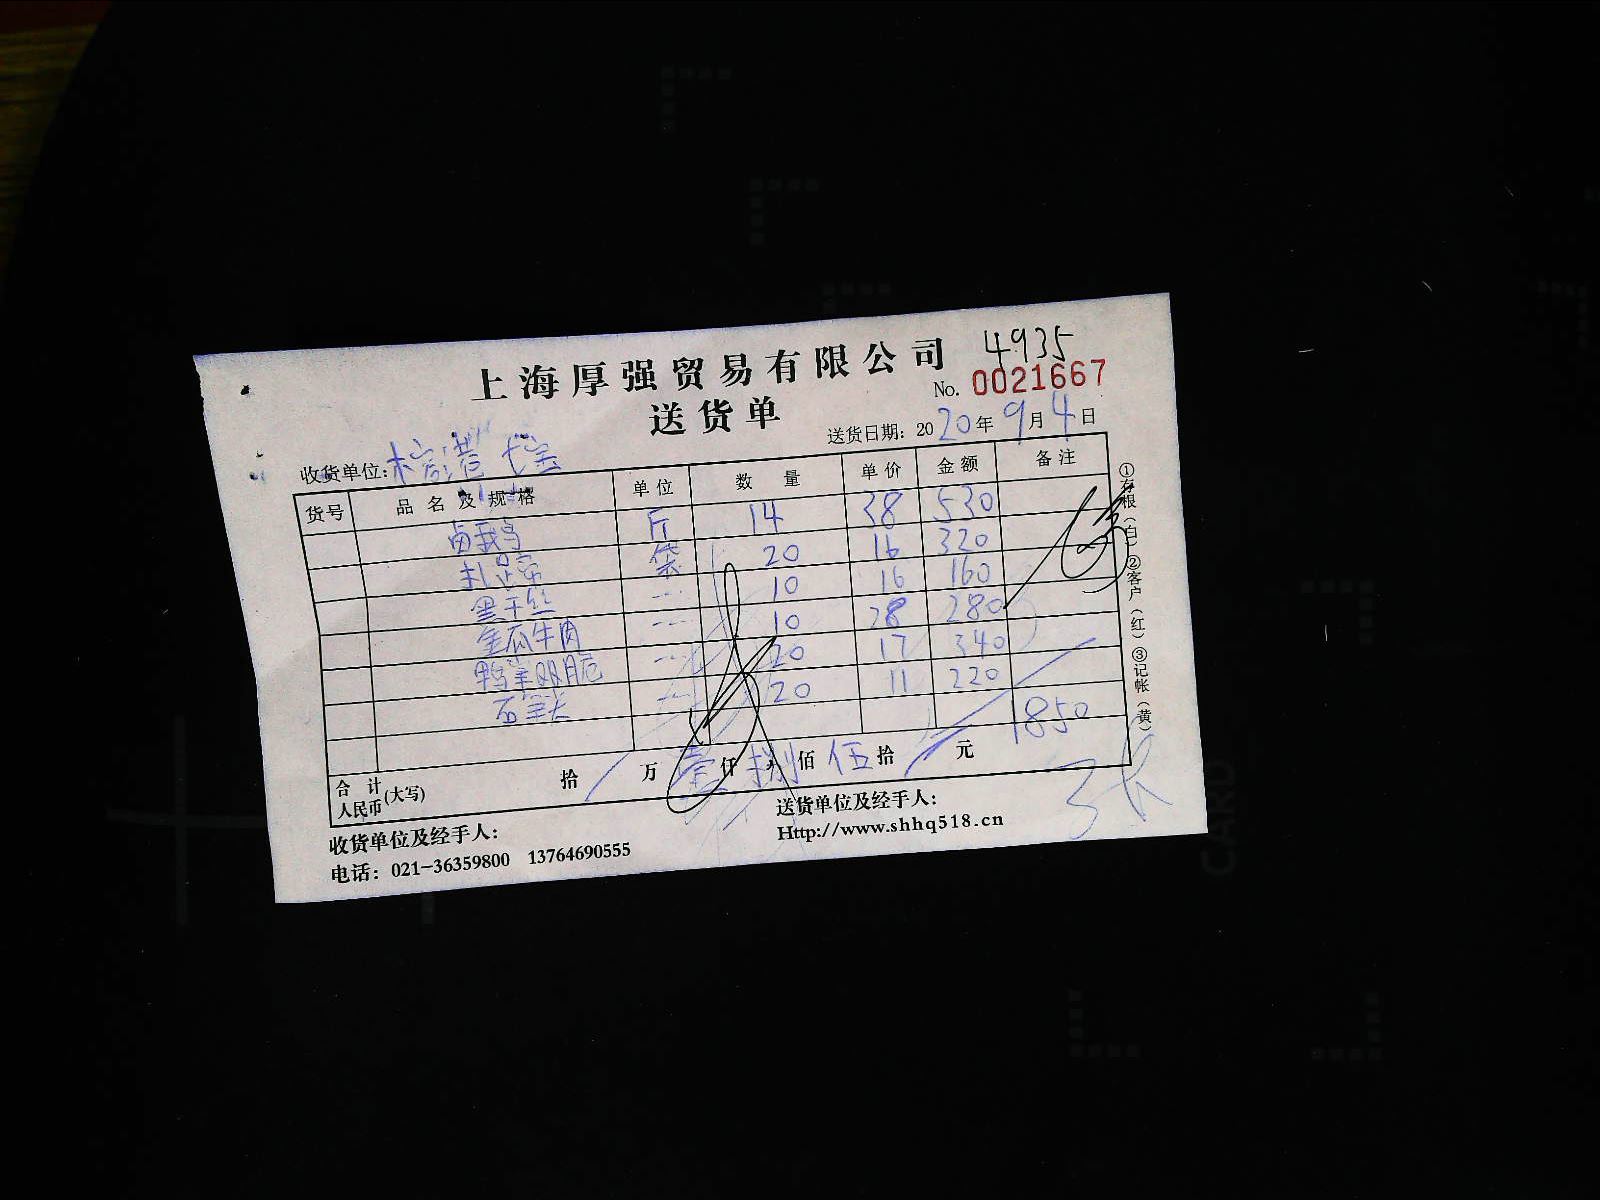 4935
上海厚强贸易有限公司
No. 0021667
送货单
送货日期: 2020年9月4日
收货单位:
货号 品名及规格 单位 数量 单价 金额 备注
卤鹅 斤 14 38 530
扎 袋 20 16 320
黑干丝 10 16 160
金瓜牛肉 10 28 280
鸭 脆 20 17 340
20 11 220
1850
合计人民币(大写) 拾 万 壹仟 捌佰 伍拾 元
收货单位及经手人:
送货单位及经手人:
电话: 021-36359800 13764690555
Http://www.shhq518.cn
①存根(白)②客户(红)③记帐(黄)
CARD